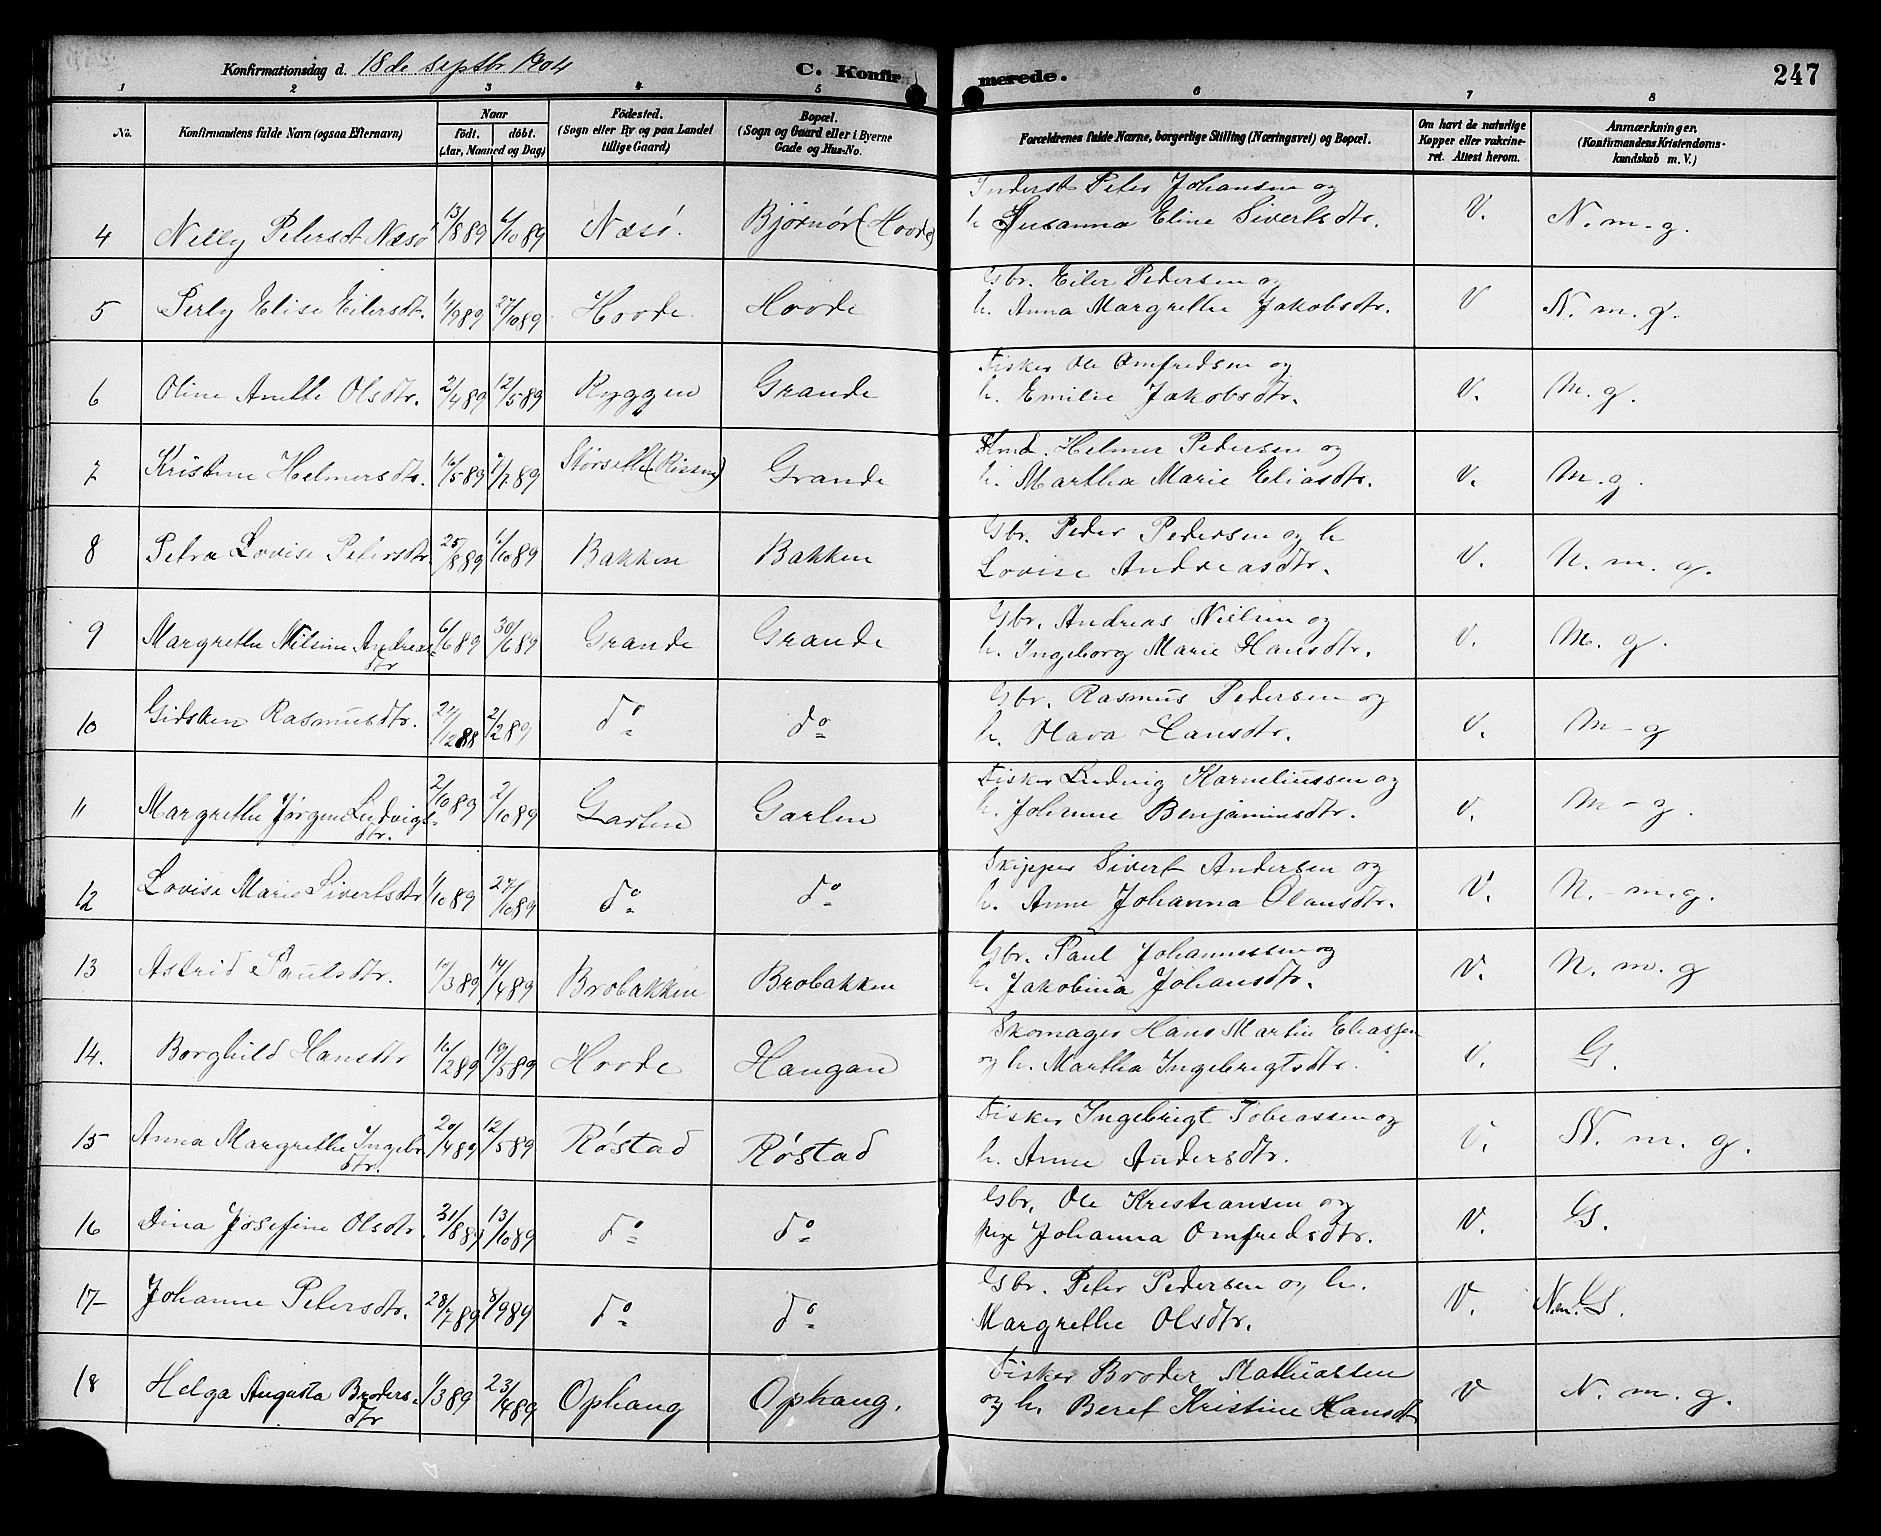 Konfirmationsdag d. 18de septbr 1904 C. Konfirmerede. 247
1 2 3 4 5 6 7 8
No. Konfirmandens fulde Navn (ogsaa Efternavn) Naar födt. döbt. (Aar, Maaned og Dag) Födested. (Sogn eller By og paa Landet tillige Gaard) Bopæl. (Sogn og Gaard eller i Byerne Gade og Hus-No. Forældrenes fulde Navne, borgerlige Stilling (Næringsvei) og Bopæl. Om havt de naturlige Kopper eller vakcineret. Attest herom. Anmærkninger. (Konfirmandens Kristendomskundskab m. V.)
4 Nelly Petersdt Næsö 13/8 89 6/10 89 Næsö. Bjørnör (Hovde) Inderst Peter Johansen og
h. Susanna Eline Sivertsdtr. V. N. m. g.
5 Perly Elise Eilersdtr. 4/9 89 27/10 89 Hovde. Hovde Gbr. Eiler Pedersen og
h. Anna Margrethe Jakobsdtr. V N. m. g.
6 Oline Anette Olsdtr. 2/4 89 12/5 89 Ryggen Grande Fisker Ole Omfredsen og
h. Emilie Jakobsdtr. V. M. g.
7 Kristine Helmersdtr. 16/5 89 89 Størseth (Rissen) Grande Helmer Pedersen og
h. Martha Marie Eliasdtr. V. M. g.
8 Petra Lovise Petersdtr. 25/8 89 6/10 89 Bakken Bakken Gbr. Peder Pedersen og h
Lovise Andreasdtr. V. N. m. g.
9 Margrethe Nilsine Andreas-
dtr 6/6 89 30/6 89 Grande Grande Gbr. Andreas Nielsen og
h. Ingeborg Marie Hansdtr. V. M. g.
10 Gidsken Rasmusdtr. 24/12 88 2/2 89 do do Gbr. Rasmus Pedersen og
h. Olava Hansdtr. V. M - g
11 Margrethe Jørgen Ludvigs-
dtr. 2/10 89 2/10 89 Garten Garten Fisker Ludvig Korneliussen og
h. Johanne Benjaminsdtr. V. M - g.
12 Lovise Marie Sivertsdtr 1/10 89 27/10 89 do do Skipper Sivert Andersen og
h. Anne Johanna Olausdtr. V. N. - m. g.
13 Astrid Paulsdtr. 17/3 89 14/4 89 Brobakken Brobakken Gbr. Paul Johannessen og
h. Jakobina Johansdtr. V. N. m. g
14. Borghild Hansdtr 16/2 89 19/5 89 Hovde Haugan Skomager Hans Martin Eliassen
og h. Martha Ingebrigtsdtr. V. G.
15 Anna Margrethe Ingebr.
dtr. 20/4 89 12/5 89 Røstad Røstad Fisker Ingebrigt Tobiassen og
h. Anne Andersdtr. V. N. m. g.
16 Dina Josefine Olsdtr. 31/8 89 13/10 89 do do Gbr. Ole Kristiansen og
pige Johanna Omfredsdtr. V. G.
17- Johanne Petersdtr. 28/7 89 8/9 89 do do Gbr. Peter Pedersen og h.
Margrethe Olsdtr. V. N.m. G.
18 Helga Augusta Broders-
dtr 1/3 89 23/4 89 Ophaug Ophaug. Fisker Broder Mathiassen
og h. Beret Kristine Hansdt V N. m. g.